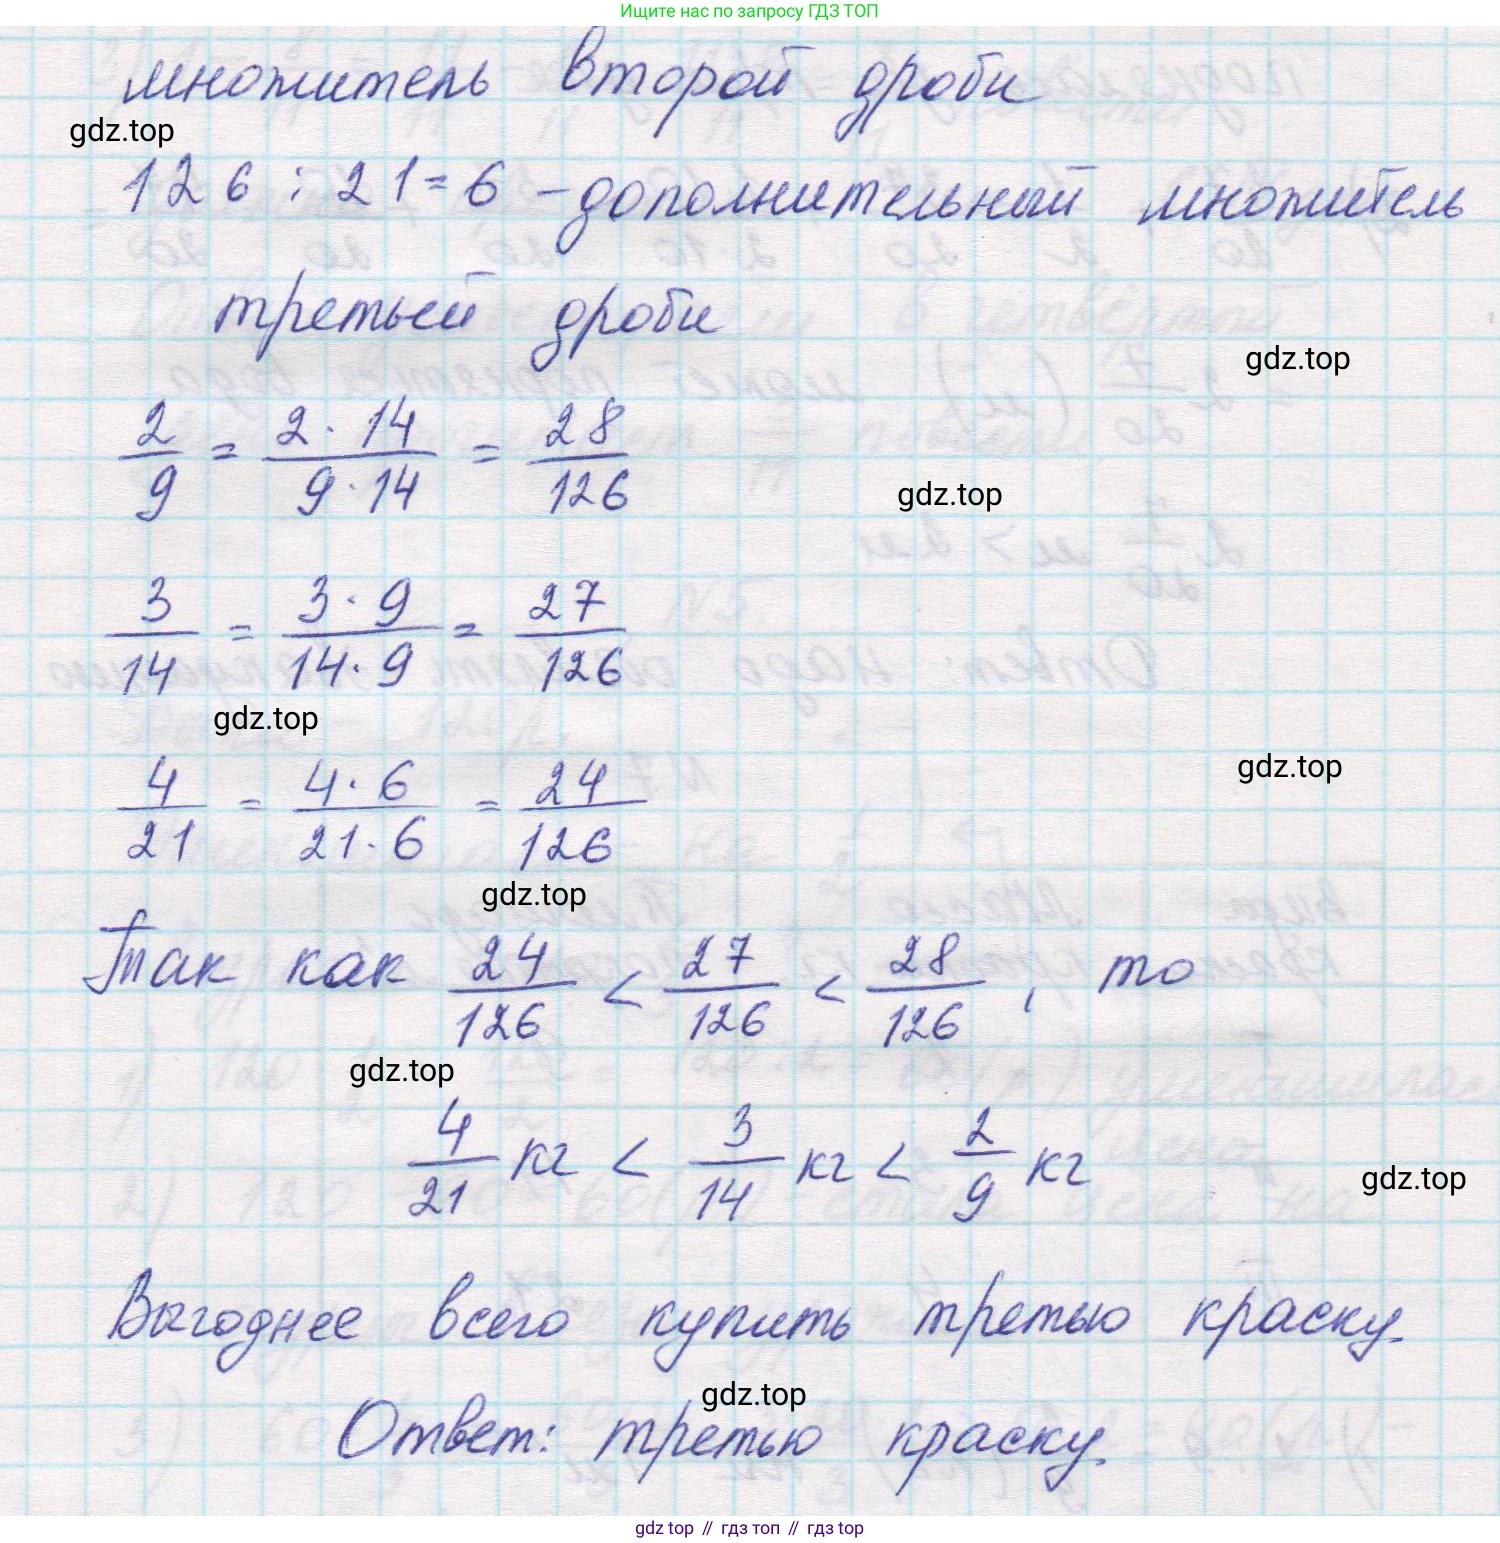 Ищите нас по запросу ГДЗ ТОП
множитель второй дроби
gdz.top
126 : 21 = 6 – дополнительный множитель
третьей дроби
gdz.top
2/9 = 2·14/9·14 = 28/126
gdz.top
3/14 = 3·9/14·9 = 27/126
gdz.top
gdz.top
4/21 = 4·6/21·6 = 24/126
gdz.top
Так как 24/126 < 27/126 < 28/126, то
gdz.top
4/21 кг < 3/14 кг < 2/9 кг
gdz.top
Выгоднее всего купить третью краску.
gdz.top
Ответ: третью краску.
gdz top // гдз топ // гдз top